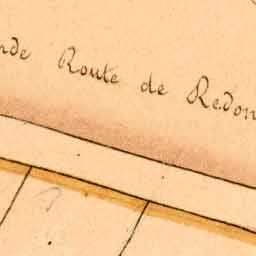 nde Route de Redon